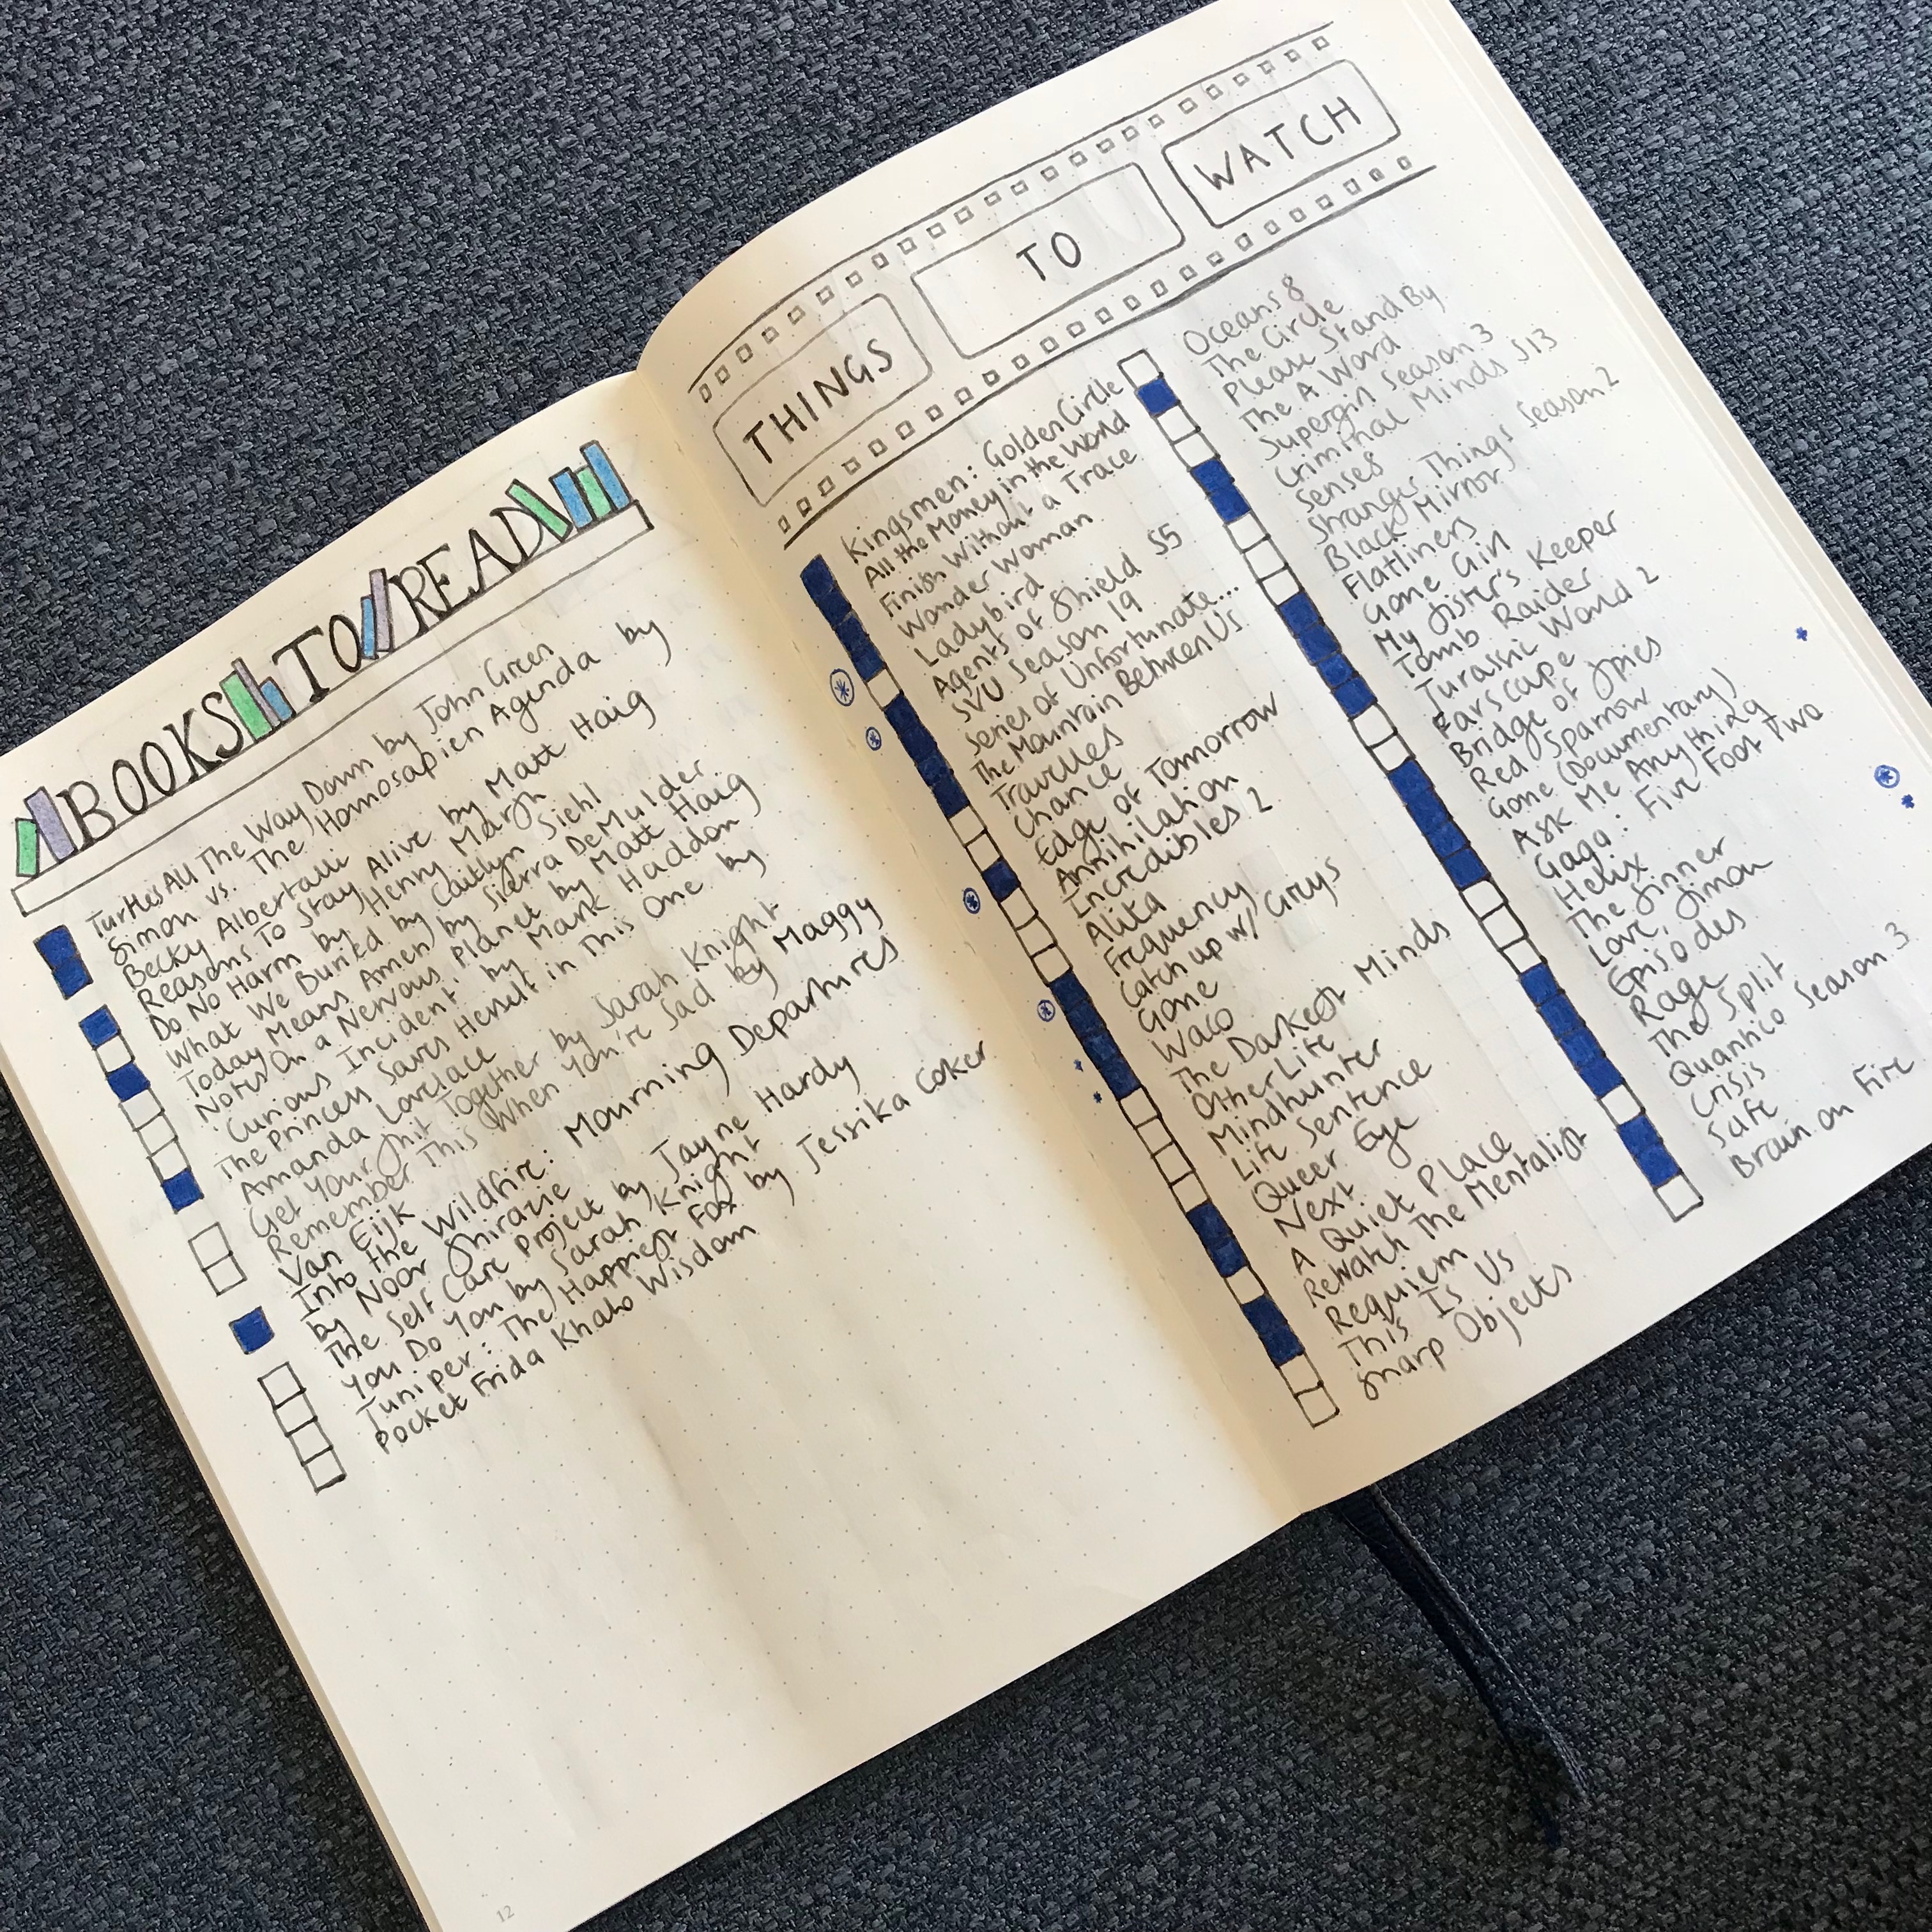 BOOKS TO READ
Turtles All The Way Down by John Green
Simon vs. The Homosapien Agenda by
Becky Albertalli
Reasons To Stay Alive by Matt Haig
Do No Harm by Henry Marsh
What We Buried by Caitlyn Siehl
Today Means Amen by Sierra DeMulder
Notes On a Nervous Planet by Matt Haig
'Curious Incident' by Mark Haddon
The Princess Saves Herself in This One by
Amanda Lovelace
Get Your Shit Together by Sarah Knight
Remember This When You're Sad by Maggy
Van Eijk
Into the Wildfire: Mourning Departures
by Noor Shirazie
The Self Care Project by Jayne Hardy
You Do You by Sarah Knight
Juniper: The Happiest Fox by Jessika Coker
Pocket Frida Khalo Wisdom
12
THINGS TO WATCH
Kingsmen: Golden Circle
All the Money in the World
Finish Without a Trace
Wonder Woman
Ladybird
Agents of Shield S5
SVU Season 19
Series of Unfortunate...
The Mountain Between Us
Travelles
Chance
Edge of Tomorrow
Annihilation
Incredibles 2
Alita
Frequency
Catch up w/ Greys
Gone
Waco
The Darkest Minds
Other Life
Mindhunter
Life Sentence
Queer Eye
Next
A Quiet Place
Rewatch The Mentalist
Requiem
This Is Us
Sharp Objects
Oceans 8
The Circle
Please Stand By
The A Word
Supergirl Season 3
Criminal Minds S13
Sense8
Stranger Things Season 2
Black Mirror
Flatliners
Gone Girl
My Sister's Keeper
Tomb Raider
Jurassic World 2
Farscape
Bridge of Spies
Red Sparrow
Gone (Documentary)
Ask Me Anything
Gaga: Five Foot Two
Helix
The Sinner
Love, Simon
Episodes
Rage
The Split
Quantico Season 3
Crisis
Safe
Brain on Fire